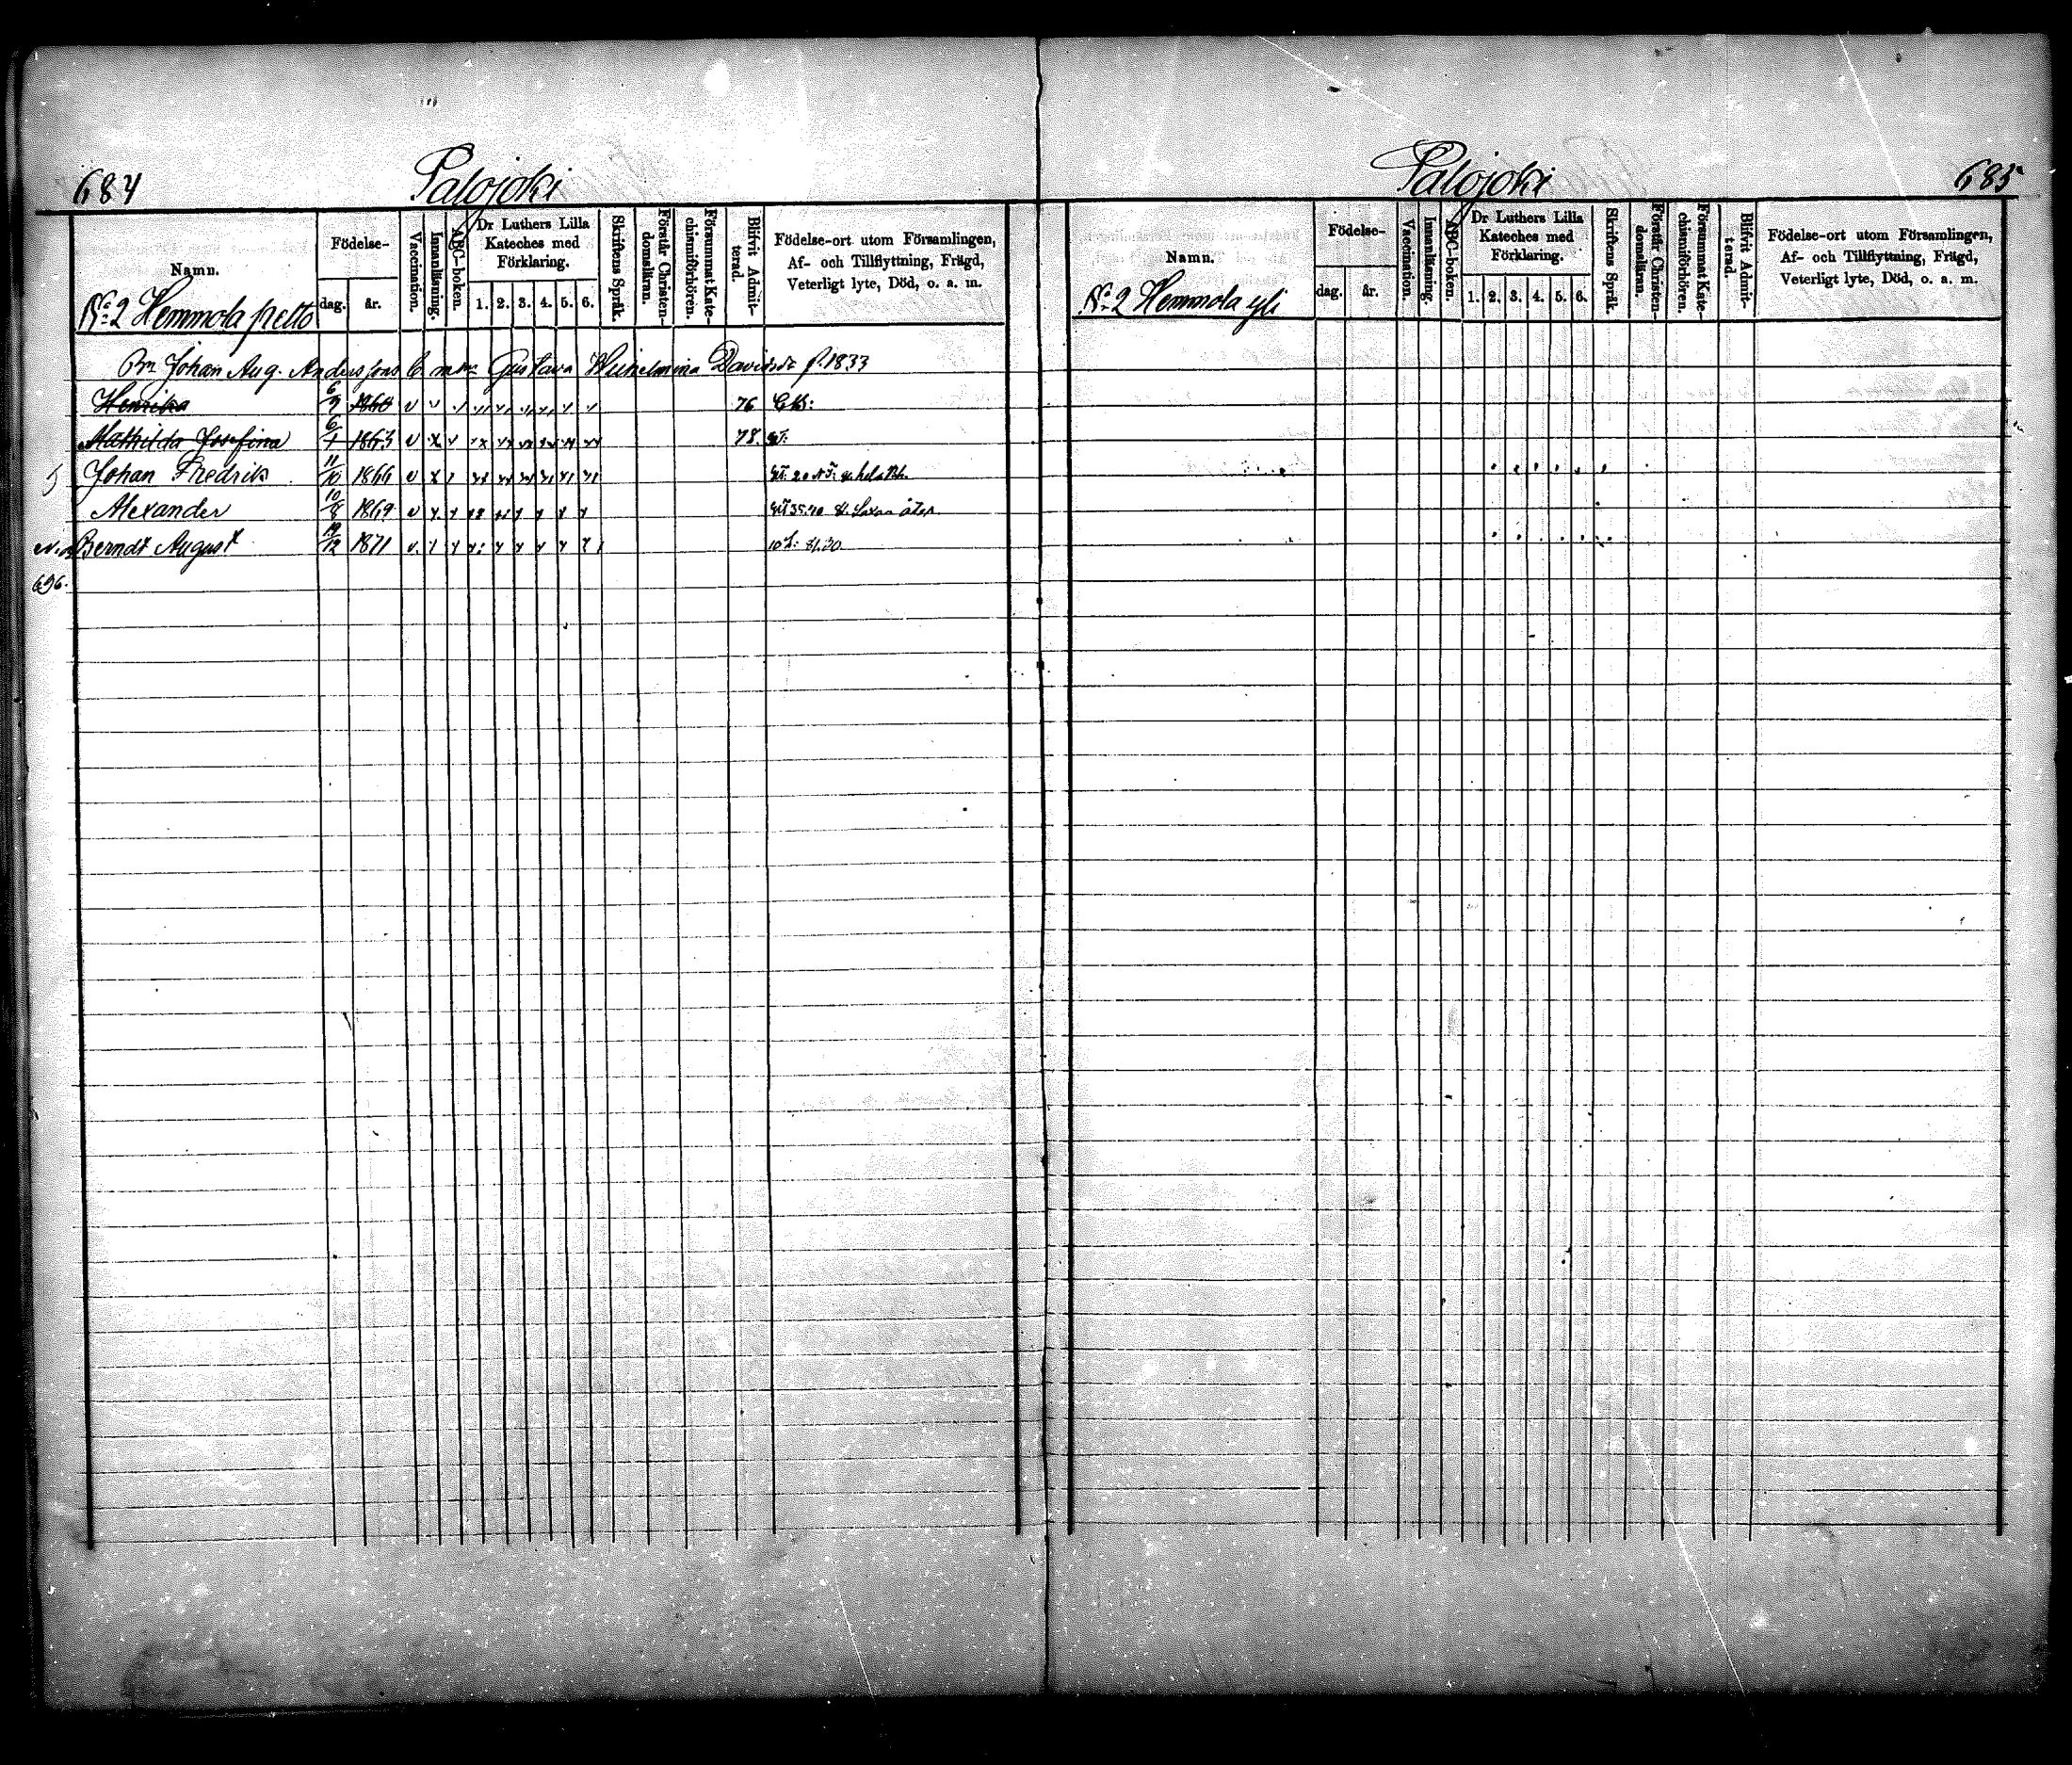 684
Palojoki
Namn.
Födelse-
dag.
år.
Vaccination.
Innanläsning.
ABC-boken.
Dr Luthers Lilla
Kateches med
Förklaring.
1. 2. 3. 4. 5. 6.
Skriftens Språk.
Förstår Christen-
domsläran.
Försummat Kate-
chismiförhören.
Blifvit Admit-
terad.
Födelse-ort utom Församlingen,
Af- och Tillflyttning, Frägd,
Veterligt lyte, Död, o. a. m.
No 2 Hemmola pelto
Bn Johan Aug. Anderssons Gustava Wilhelmina Davidsdr f. 1833
Henrika 6/9 1860 76
Mathilda Josefina 6/1 1863 78
Johan Fredrik 11/10 1866
Alexander 10/8 1869
Berndt August 19/12 1871
696.
Palojoki
685
Namn.
Födelse-
dag.
år.
Vaccination.
Innanläsning.
ABC-boken.
Dr Luthers Lilla
Kateches med
Förklaring.
1. 2. 3. 4. 5. 6.
Skriftens Språk.
Förstår Christen-
domsläran.
Försummat Kate-
chismiförhören.
Blifvit Admit-
terad.
Födelse-ort utom Församlingen,
Af- och Tillflyttning, Frägd,
Veterligt lyte, Död, o. a. m.
No 2 Hemmola yli